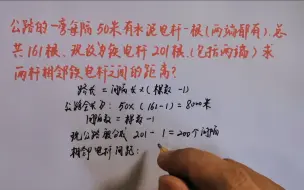 公路的一旁每隔50米有水泥电杆一根(两端都有)总
共161根、现改为铁电杆201根(包括两端)求
两杆相邻铁电杆之间的距离?
路长 = 间隔长×(棵数-1)
公路全长为:50×(161-1)=8000米
间隔数=棵数-1
现公路被分成 201-1=200个间隔
相邻电杆间距: